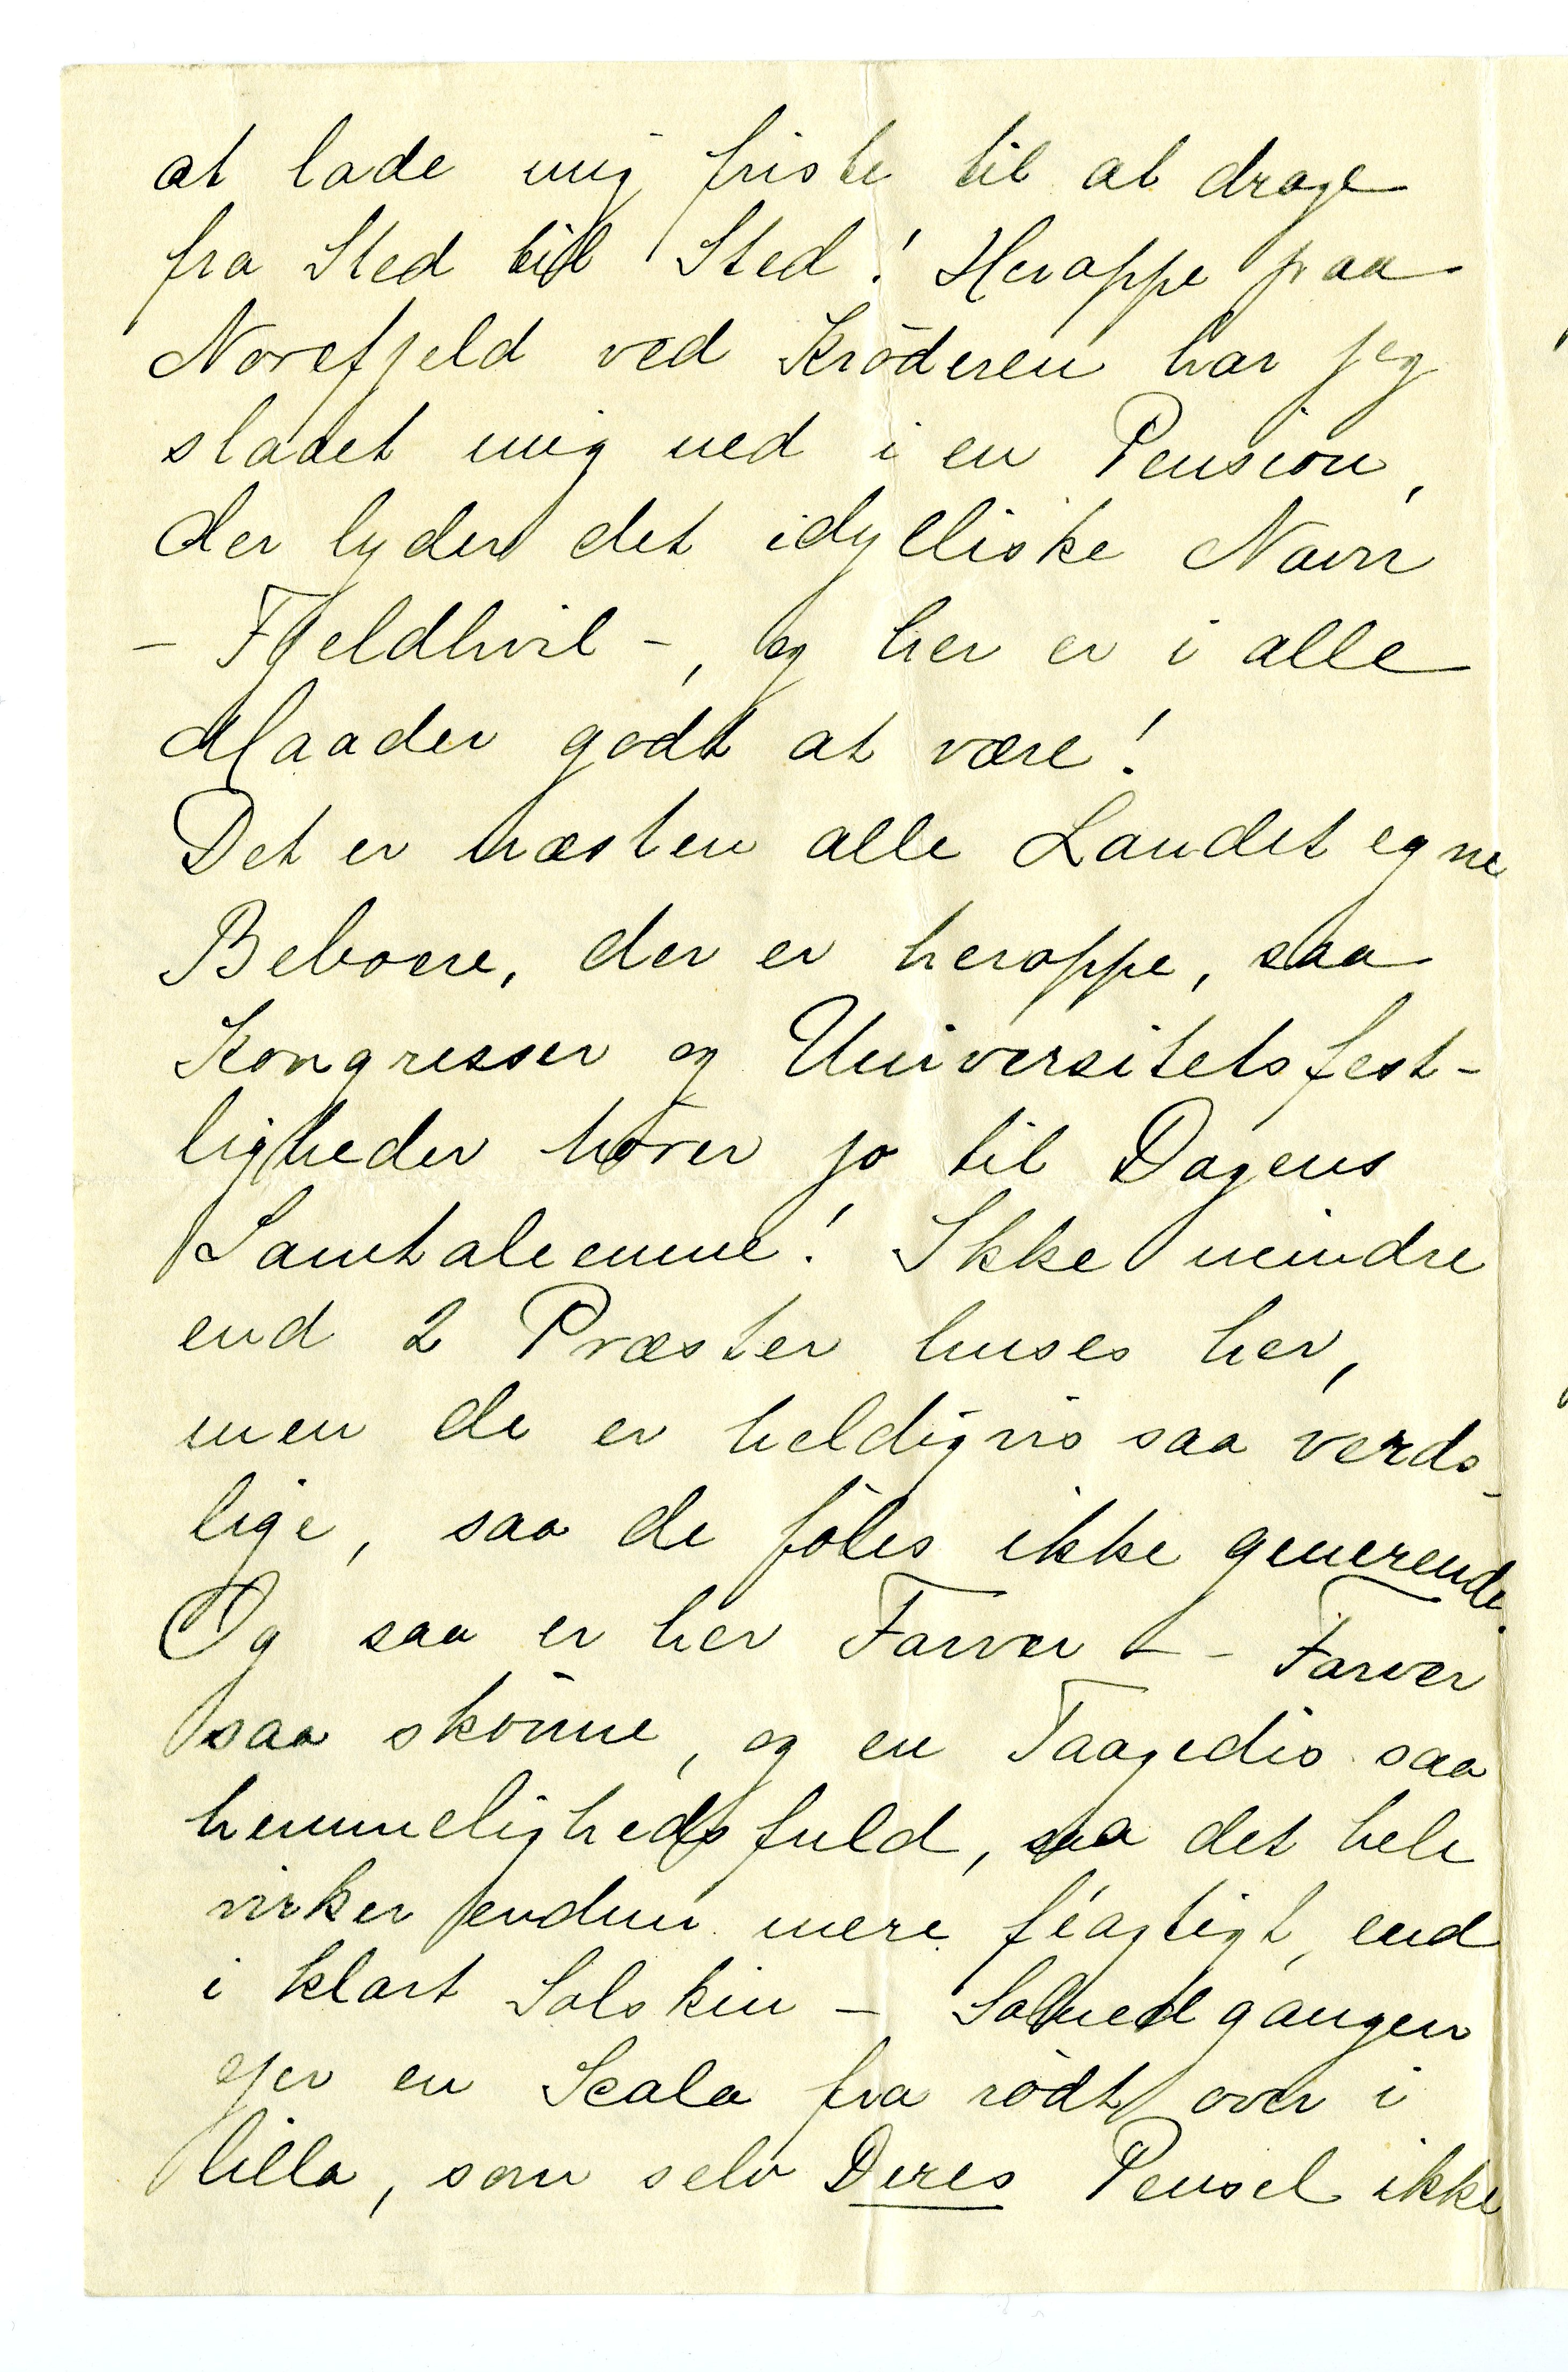 at lade mig friste til at drage
fra Sted til Sted! Heroppe paa
Norefjeld ved Krōderen har jeg
slaaet mig ned i en Pension,
der lyder det idylliske Navn
- Fjeldhvil -, og her er i alle
Maader godt at være!
Det er næsten alle Landet egne
Beboere, der er heroppe, saa
Kongresser og Universitetsfest-
ligheder hōrer jo til Dagens
Samtaleemne! Ikke mindre
end 2 Præster huses her,
men de er heldigvis saa verds-
lige, saa de fōles ikke generende.
Og saa er her Farver - - Farver
saa skōnne, og en Taagedis saa
hemmelighedsfuld, saa det hele
virker endnu mere féagtigt, end
i klart Solskin - Solnedgangen
ejer en Scala fra rōdt over i
lilla, som selv Deres Pensel ikke